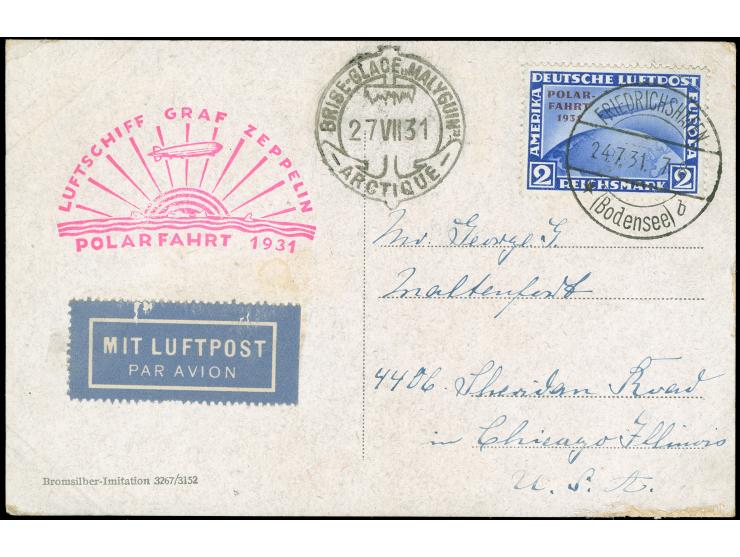 LUFTSCHIFF GRAF ZEPPELIN
POLARFAHRT 1931
BRISE-GLACE „MALYGUIN"
27 VII 31
— ARCTIQUE —
DEUTSCHE LUFTPOST
AMERIKA
EUROPA
POLAR-
FAHRT
1931
2 REICHSMARK 2
FRIEDRICHSHAFEN
24.7.31. 7
* (Bodensee) b
Mr. George G
Waltenfordt
4406. Sheridan Road
in Chicago Illinois
U. S. A.
MIT LUFTPOST
PAR AVION
Bromsilber-Imitation 3267/3152